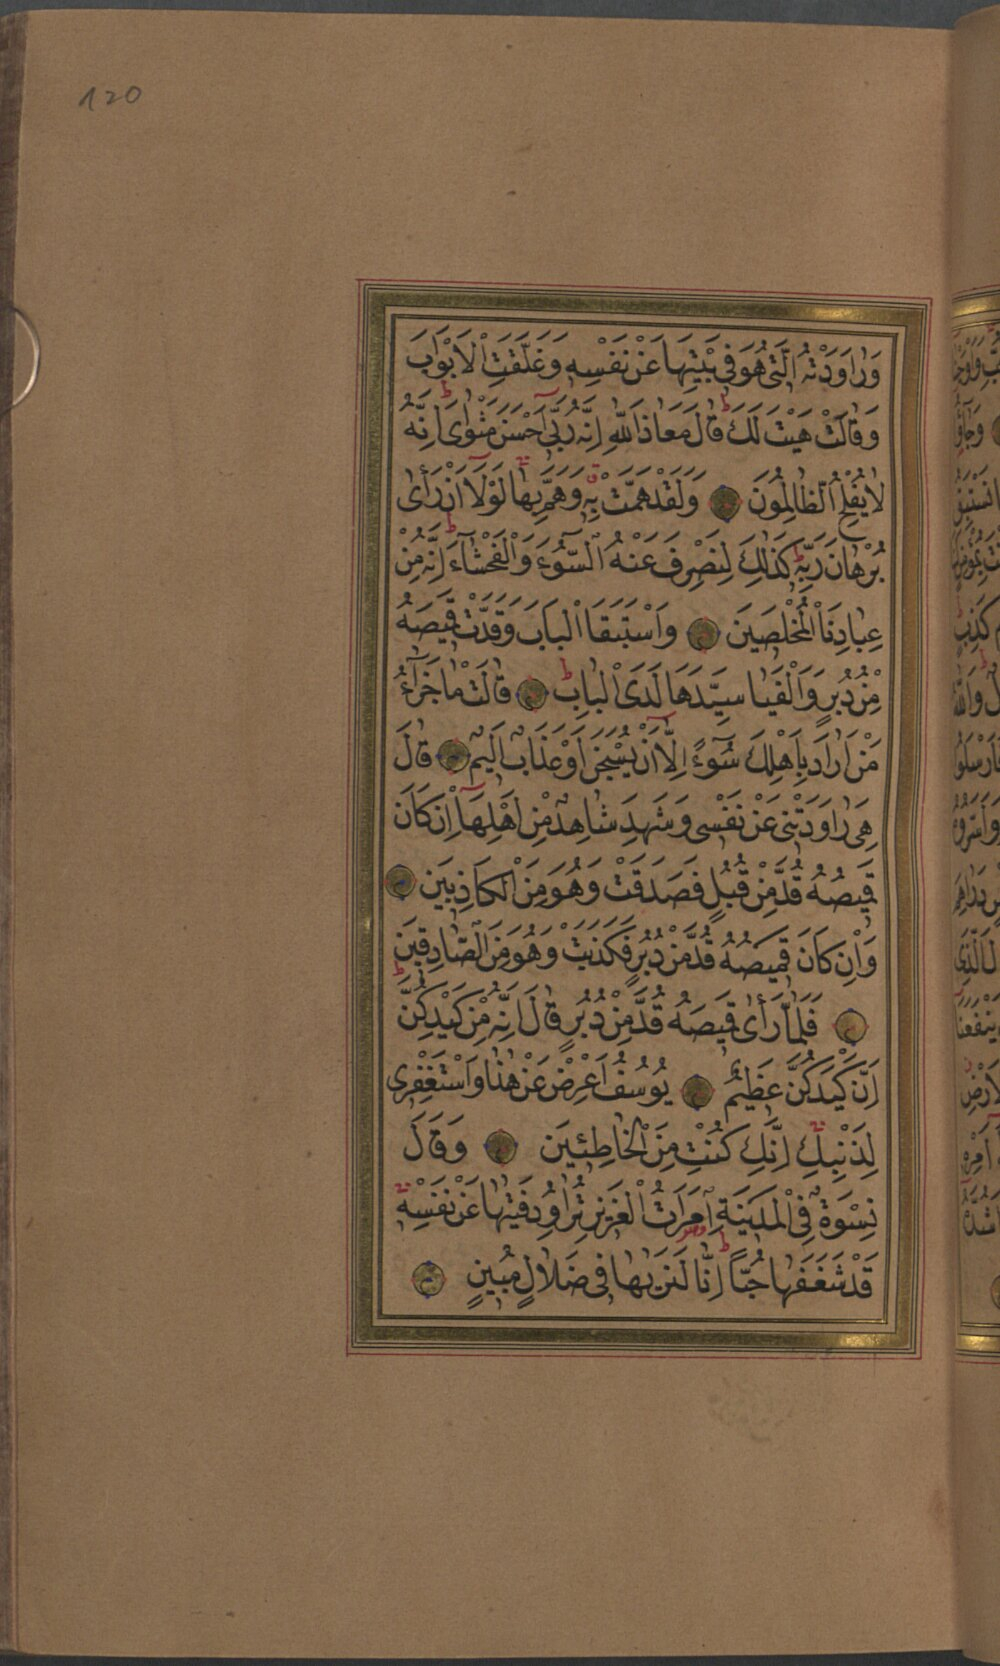 120
وَرَاوَدَتْهُ الَّتِي هُوَ فِي بَيْتِهَا عَنْ نَفْسِهِ وَغَلَّقَتِ الْاَبْوَابَ
وَقَالَتْ هَيْتَ لَكَ قَالَ مَعَاذَ اللّٰهِ اِنَّهُ رَبِّٓي اَحْسَنَ مَثْوَايَ اِنَّهُ
لَا يُفْلِحُ الظَّالِمُونَ وَلَقَدْ هَمَّتْ بِهِ وَهَمَّ بِهَا لَوْلَٓا اَنْ رَاٰى
بُرْهَانَ رَبِّهِ كَذٰلِكَ لِنَصْرِفَ عَنْهُ السُّٓوءَ وَالْفَحْشَٓاءَ اِنَّهُ مِنْ
عِبَادِنَا الْمُخْلَصِينَ وَاسْتَبَقَا الْبَابَ وَقَدَّتْ قَمِيصَهُ
مِنْ دُبُرٍ وَاَلْفَيَا سَيِّدَهَا لَدَى الْبَابِ قَالَتْ مَا جَزَٓاءُ
مَنْ اَرَادَ بِاَهْلِكَ سُٓوءًا اِلَّٓا اَنْ يُسْجَنَ اَوْ عَذَابٌ اَلِيمٌ قَالَ
هِيَ رَاوَدَتْنِي عَنْ نَفْسِي وَشَهِدَ شَاهِدٌ مِنْ اَهْلِهَٓا اِنْ كَانَ
قَمِيصُهُ قُدَّ مِنْ قُبُلٍ فَصَدَقَتْ وَهُوَ مِنَ الْكَاذِبِينَ
وَاِنْ كَانَ قَمِيصُهُ قُدَّ مِنْ دُبُرٍ فَكَذَبَتْ وَهُوَ مِنَ الصَّادِقِينَ
فَلَمَّا رَاٰى قَمِيصَهُ قُدَّ مِنْ دُبُرٍ قَالَ اِنَّهُ مِنْ كَيْدِكُنَّ
اِنَّ كَيْدَكُنَّ عَظِيمٌ يُوسُفُ اَعْرِضْ عَنْ هٰذَا وَاسْتَغْفِرِي
لِذَنْبِكِ اِنَّكِ كُنْتِ مِنَ الْخَاطِئِينَ وَقَالَ
نِسْوَةٌ فِي الْمَدِينَةِ امْرَاَتُ الْعَزِيزِ تُرَاوِدُ فَتٰيهَا عَنْ نَفْسِهِ
قَدْ شَغَفَهَا حُبًّا اِنَّا لَنَرٰيهَا فِي ضَلَالٍ مُبِينٍ